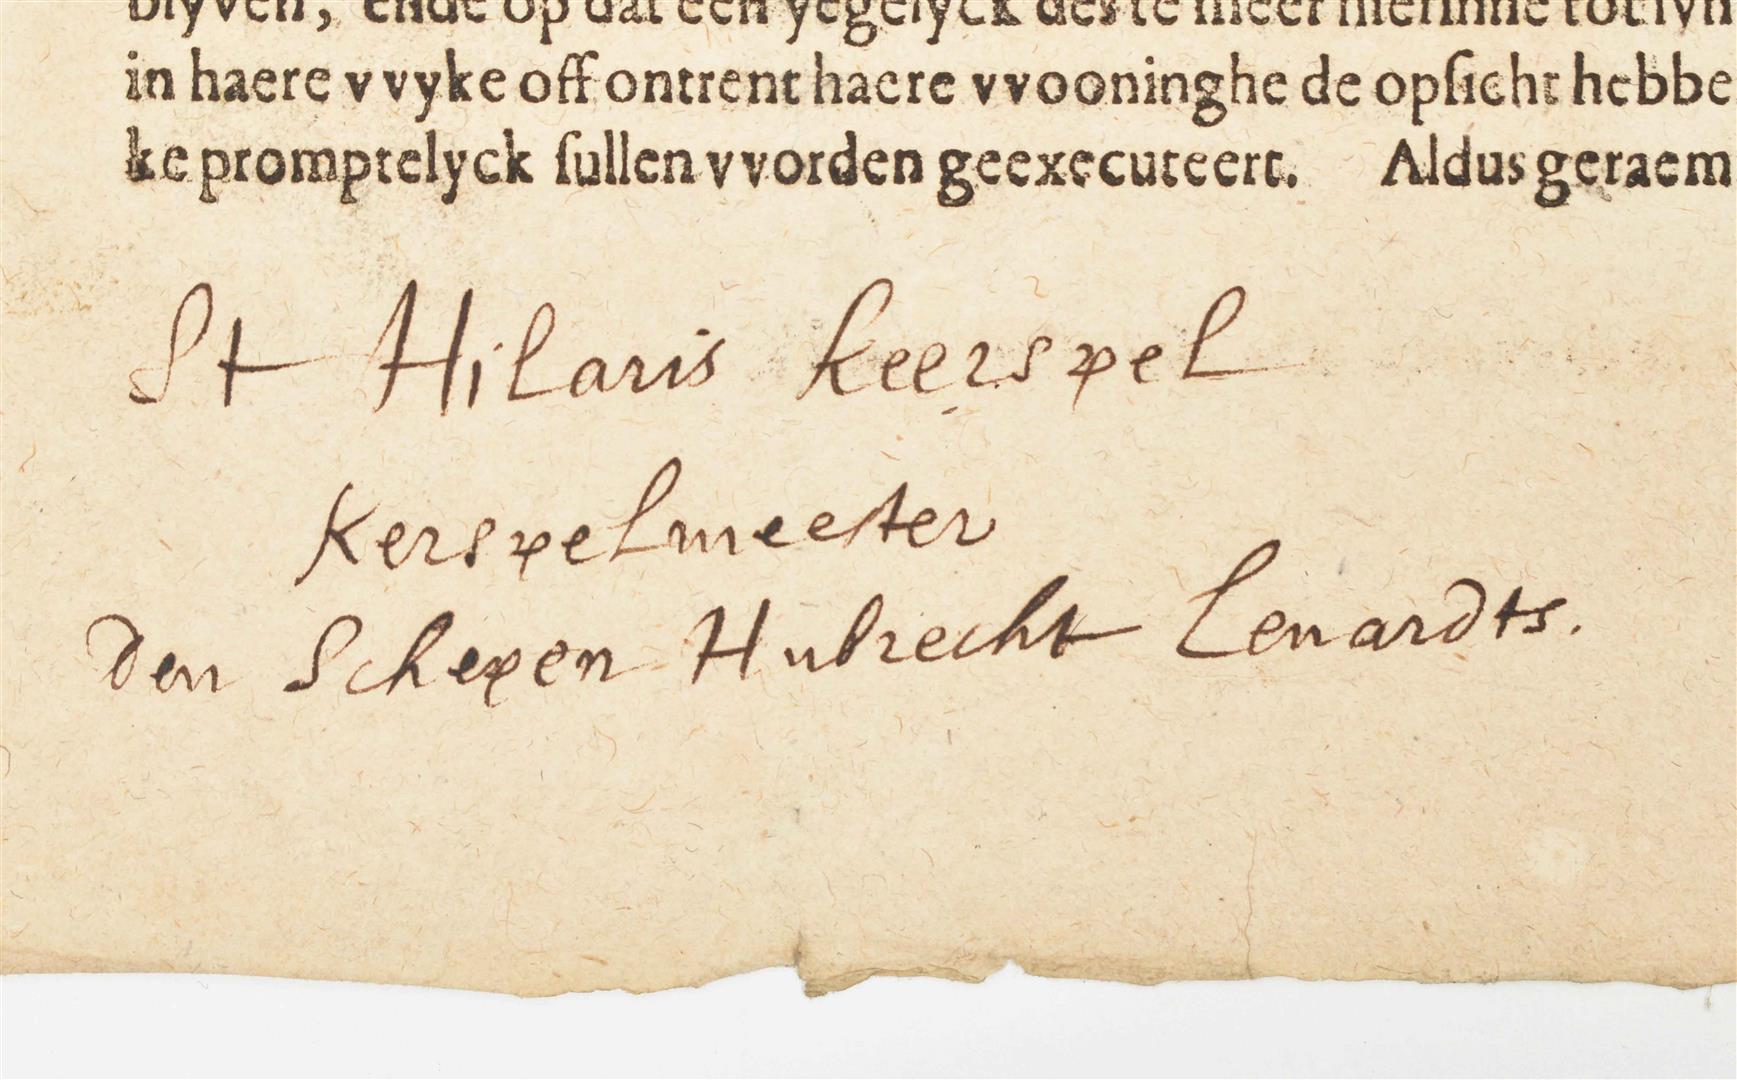 blyven, ende op dat een yegelyck des te meer hierinne tot syn
in haere vvyke off ontrent haere vvooninghe de opsicht hebbe
ke promptelyck sullen vvorden geexecuteert. Aldus geraem
St Hilaris Keerspel
Kerspelmeester
Den Schepen Hubrecht Lenardts.